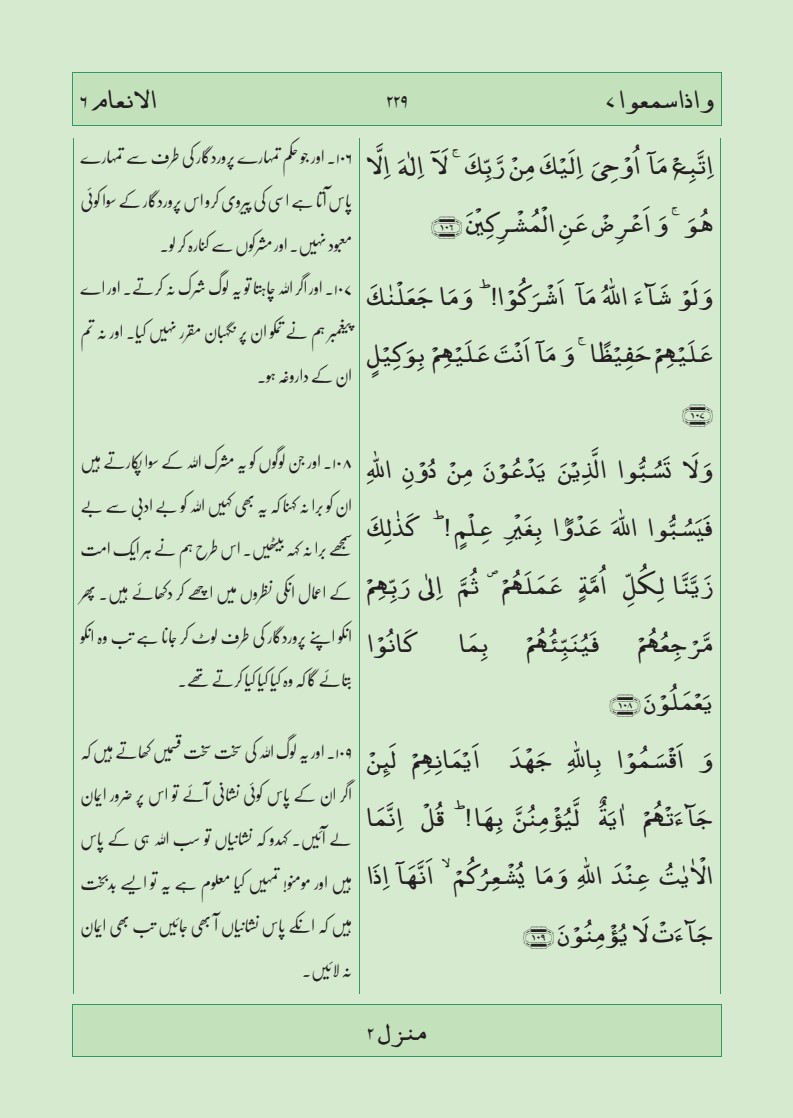 واذاسمعوا ۷
۲۲۹
الانعام ۶
اِتَّبِعۡ مَاۤ اُوۡحِىَ اِلَيۡكَ مِنۡ رَّبِّكَ‌ۚ لَاۤ اِلٰهَ اِلَّا
هُوَ‌ۚ وَ اَعۡرِضۡ عَنِ الۡمُشۡرِكِيۡنَ ﴿۱۰۶﴾
وَلَوۡ شَآءَ اللّٰهُ مَاۤ اَشۡرَكُوۡا‌ ؕ وَمَا جَعَلۡنٰكَ
عَلَيۡهِمۡ حَفِيۡظًا‌ ۚ وَ مَاۤ اَنۡتَ عَلَيۡهِمۡ بِوَكِيۡلٍ
﴿۱۰۷﴾
وَلَا تَسُبُّوا الَّذِيۡنَ يَدۡعُوۡنَ مِنۡ دُوۡنِ اللّٰهِ
فَيَسُبُّوا اللّٰهَ عَدۡوًۢا بِغَيۡرِ عِلۡمٍ‌ ؕ كَذٰلِكَ
زَيَّنَّا لِكُلِّ اُمَّةٍ عَمَلَهُمۡ ۖ ثُمَّ اِلٰى رَبِّهِمۡ
مَّرۡجِعُهُمۡ فَيُنَبِّئُهُمۡ بِمَا كَانُوۡا
يَعۡمَلُوۡنَ ﴿۱۰۸﴾
وَ اَقۡسَمُوۡا بِاللّٰهِ جَهۡدَ اَيۡمَانِهِمۡ لَئِنۡ
جَآءَتۡهُمۡ اٰيَةٌ لَّيُؤۡمِنُنَّ بِهَا‌ ؕ قُلۡ اِنَّمَا
الۡاٰيٰتُ عِنۡدَ اللّٰهِ‌ وَمَا يُشۡعِرُكُمۡۙ اَنَّهَاۤ اِذَا
جَآءَتۡ لَا يُؤۡمِنُوۡنَ ﴿۱۰۹﴾
۱۰۶۔ اور جو حکم تمہارے پروردگار کی طرف سے تمہارے
پاس آتا ہے اسی کی پیروی کرو اس پروردگار کے سوا کوئی
معبود نہیں۔ اور مشرکوں سے کنارہ کر لو۔
۱۰۷۔ اور اگر اللہ چاہتا تو یہ لوگ شرک نہ کرتے۔ اور اے
پیغمبر ہم نے تمکو ان پر نگہبان مقرر نہیں کیا۔ اور نہ تم
ان کے داروغہ ہو۔
۱۰۸۔ اور جن لوگوں کو یہ مشرک اللہ کے سوا پکارتے ہیں
ان کو برا نہ کہنا کہ یہ بھی کہیں اللہ کو بے ادبی سے بے
سمجھے برا نہ کہہ بیٹھیں۔ اس طرح ہم نے ہر ایک امت
کے اعمال انکی نظروں میں اچھے کر دکھائے ہیں۔ پھر
انکو اپنے پروردگار کی طرف لوٹ کر جانا ہے تب وہ انکو
بتائے گا کہ وہ کیا کیا کیا کرتے تھے۔
۱۰۹۔ اور یہ لوگ اللہ کی سخت سخت قسمیں کھاتے ہیں کہ
اگر ان کے پاس کوئی نشانی آئے تو اس پر ضرور ایمان
لے آئیں۔ کہدو کہ نشانیاں تو سب اللہ ہی کے پاس
ہیں اور مومنو! تمہیں کیا معلوم ہے یہ تو ایسے بدبخت
ہیں کہ انکے پاس نشانیاں آ بھی جائیں تب بھی ایمان
نہ لائیں۔
منزل ۲